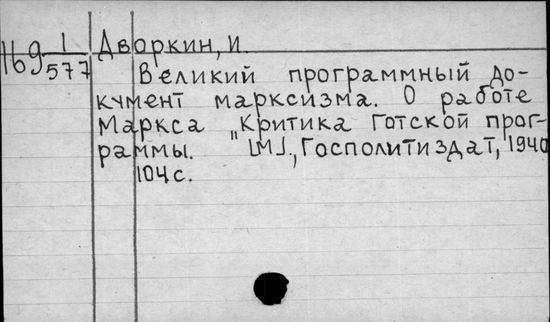 169 1/577 Дворкин, И.
Великий программный до-
кумент марксизма. О работе
Маркса „Критика Готской прог-
раммы. [М]., Госполитиздат, 1940
104 с.